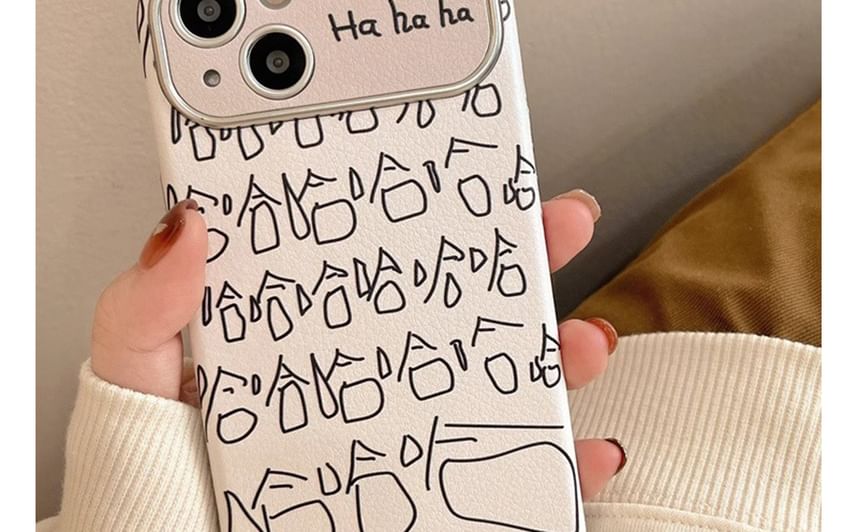 Ha ha ha
哈哈哈哈哈哈
哈哈哈哈哈哈
哈哈哈哈哈哈
哈哈哈哈哈哈
哈哈哈